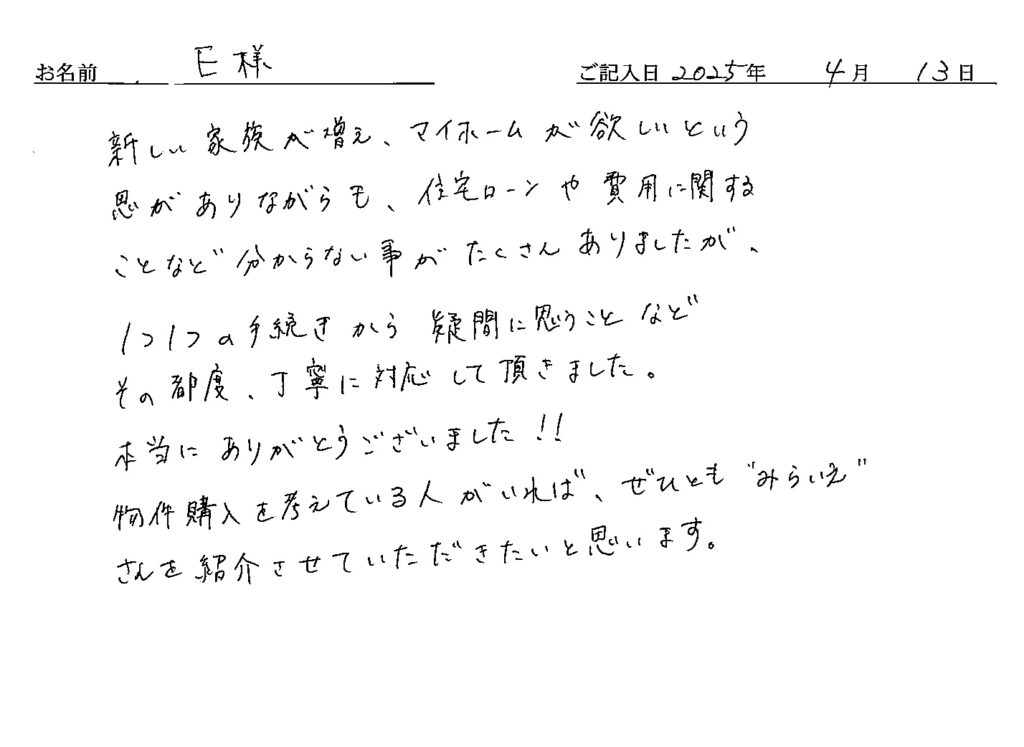 お名前 E様 ご記入日 2025年 4月 13日
新しい家族が増え、マイホームが欲しいという
思がありながらも、住宅ローンや費用に関する
ことなど分からない事がたくさんありましたが、
1つ1つの手続きから疑問に思うことなど
その都度、丁寧に対応して頂きました。
本当にありがとうございました!!
物件購入を考えている人がいれば、ぜひとも"みらいえ"
さんを紹介させていただきたいと思います。